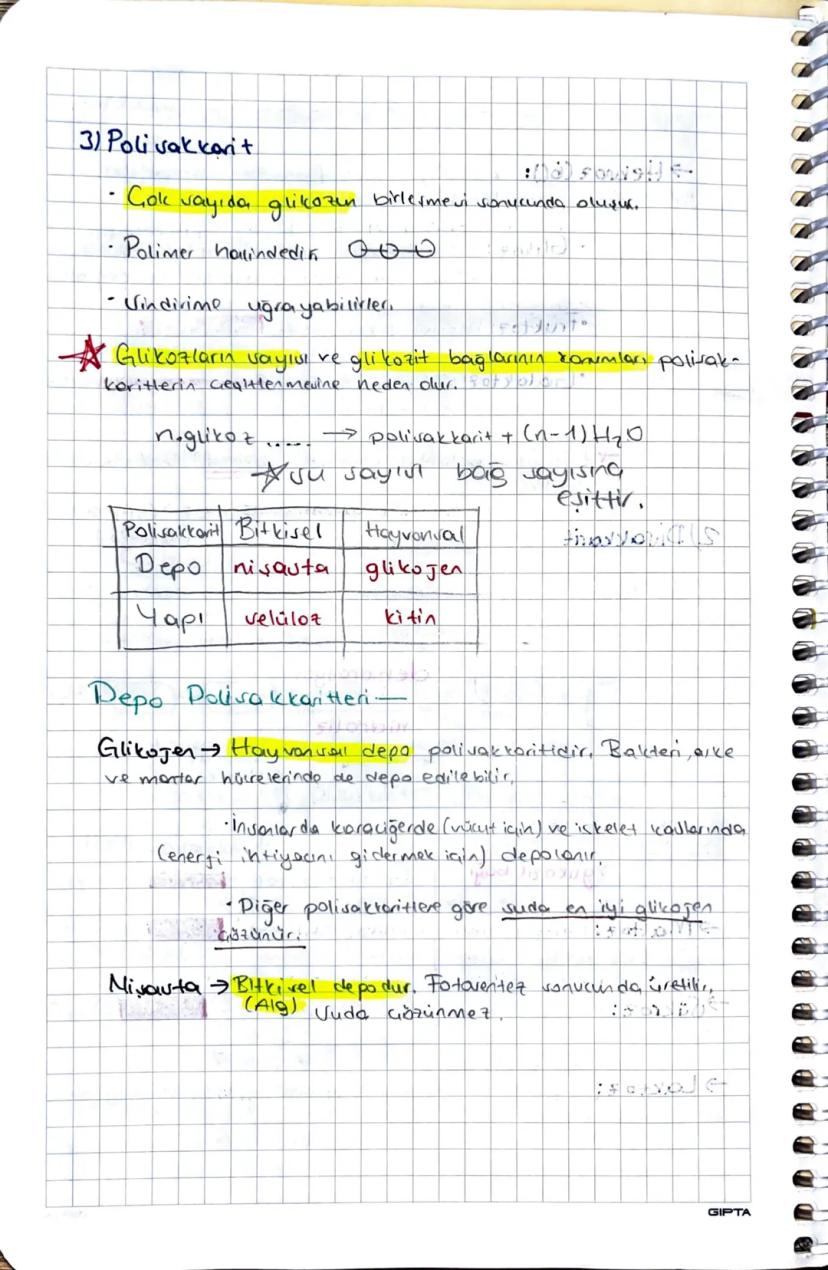 3) Polisakkarit
· Çok sayıda glikozun birleşmesi sonucunda oluşur.
· Polimer halindedir
· Sindirime uğrayabilirler.
Glikozların sayısı ve glikozit bağlarının konumları polisak-
karitlerin çeşitlenmesine neden olur.
n.glikoz ..... → polisakkarit + (n-1) H₂O
☆ su sayısı bağ sayısına
eşittir.
Polisakkarit Bitkisel Hayvansal
Depo nişasta glikojen
Yapı selüloz kitin
Depo Polisakkaritleri —
Glikojen → Hayvansal depo polisakkaritidir. Bakteri, arke
ve mantar hücrelerinde de depo edilebilir.
· İnsanlarda karaciğerde (vücut için) ve iskelet kaslarında
(enerji ihtiyacını gidermek için) depolanır.
· Diğer polisakkaritlere göre suda en iyi glikojen
çözünür.
Nişasta → Bitkisel depodur. Fotosentez sonucunda üretilir.
(Alg) Suda çözünmez.
GIPTA